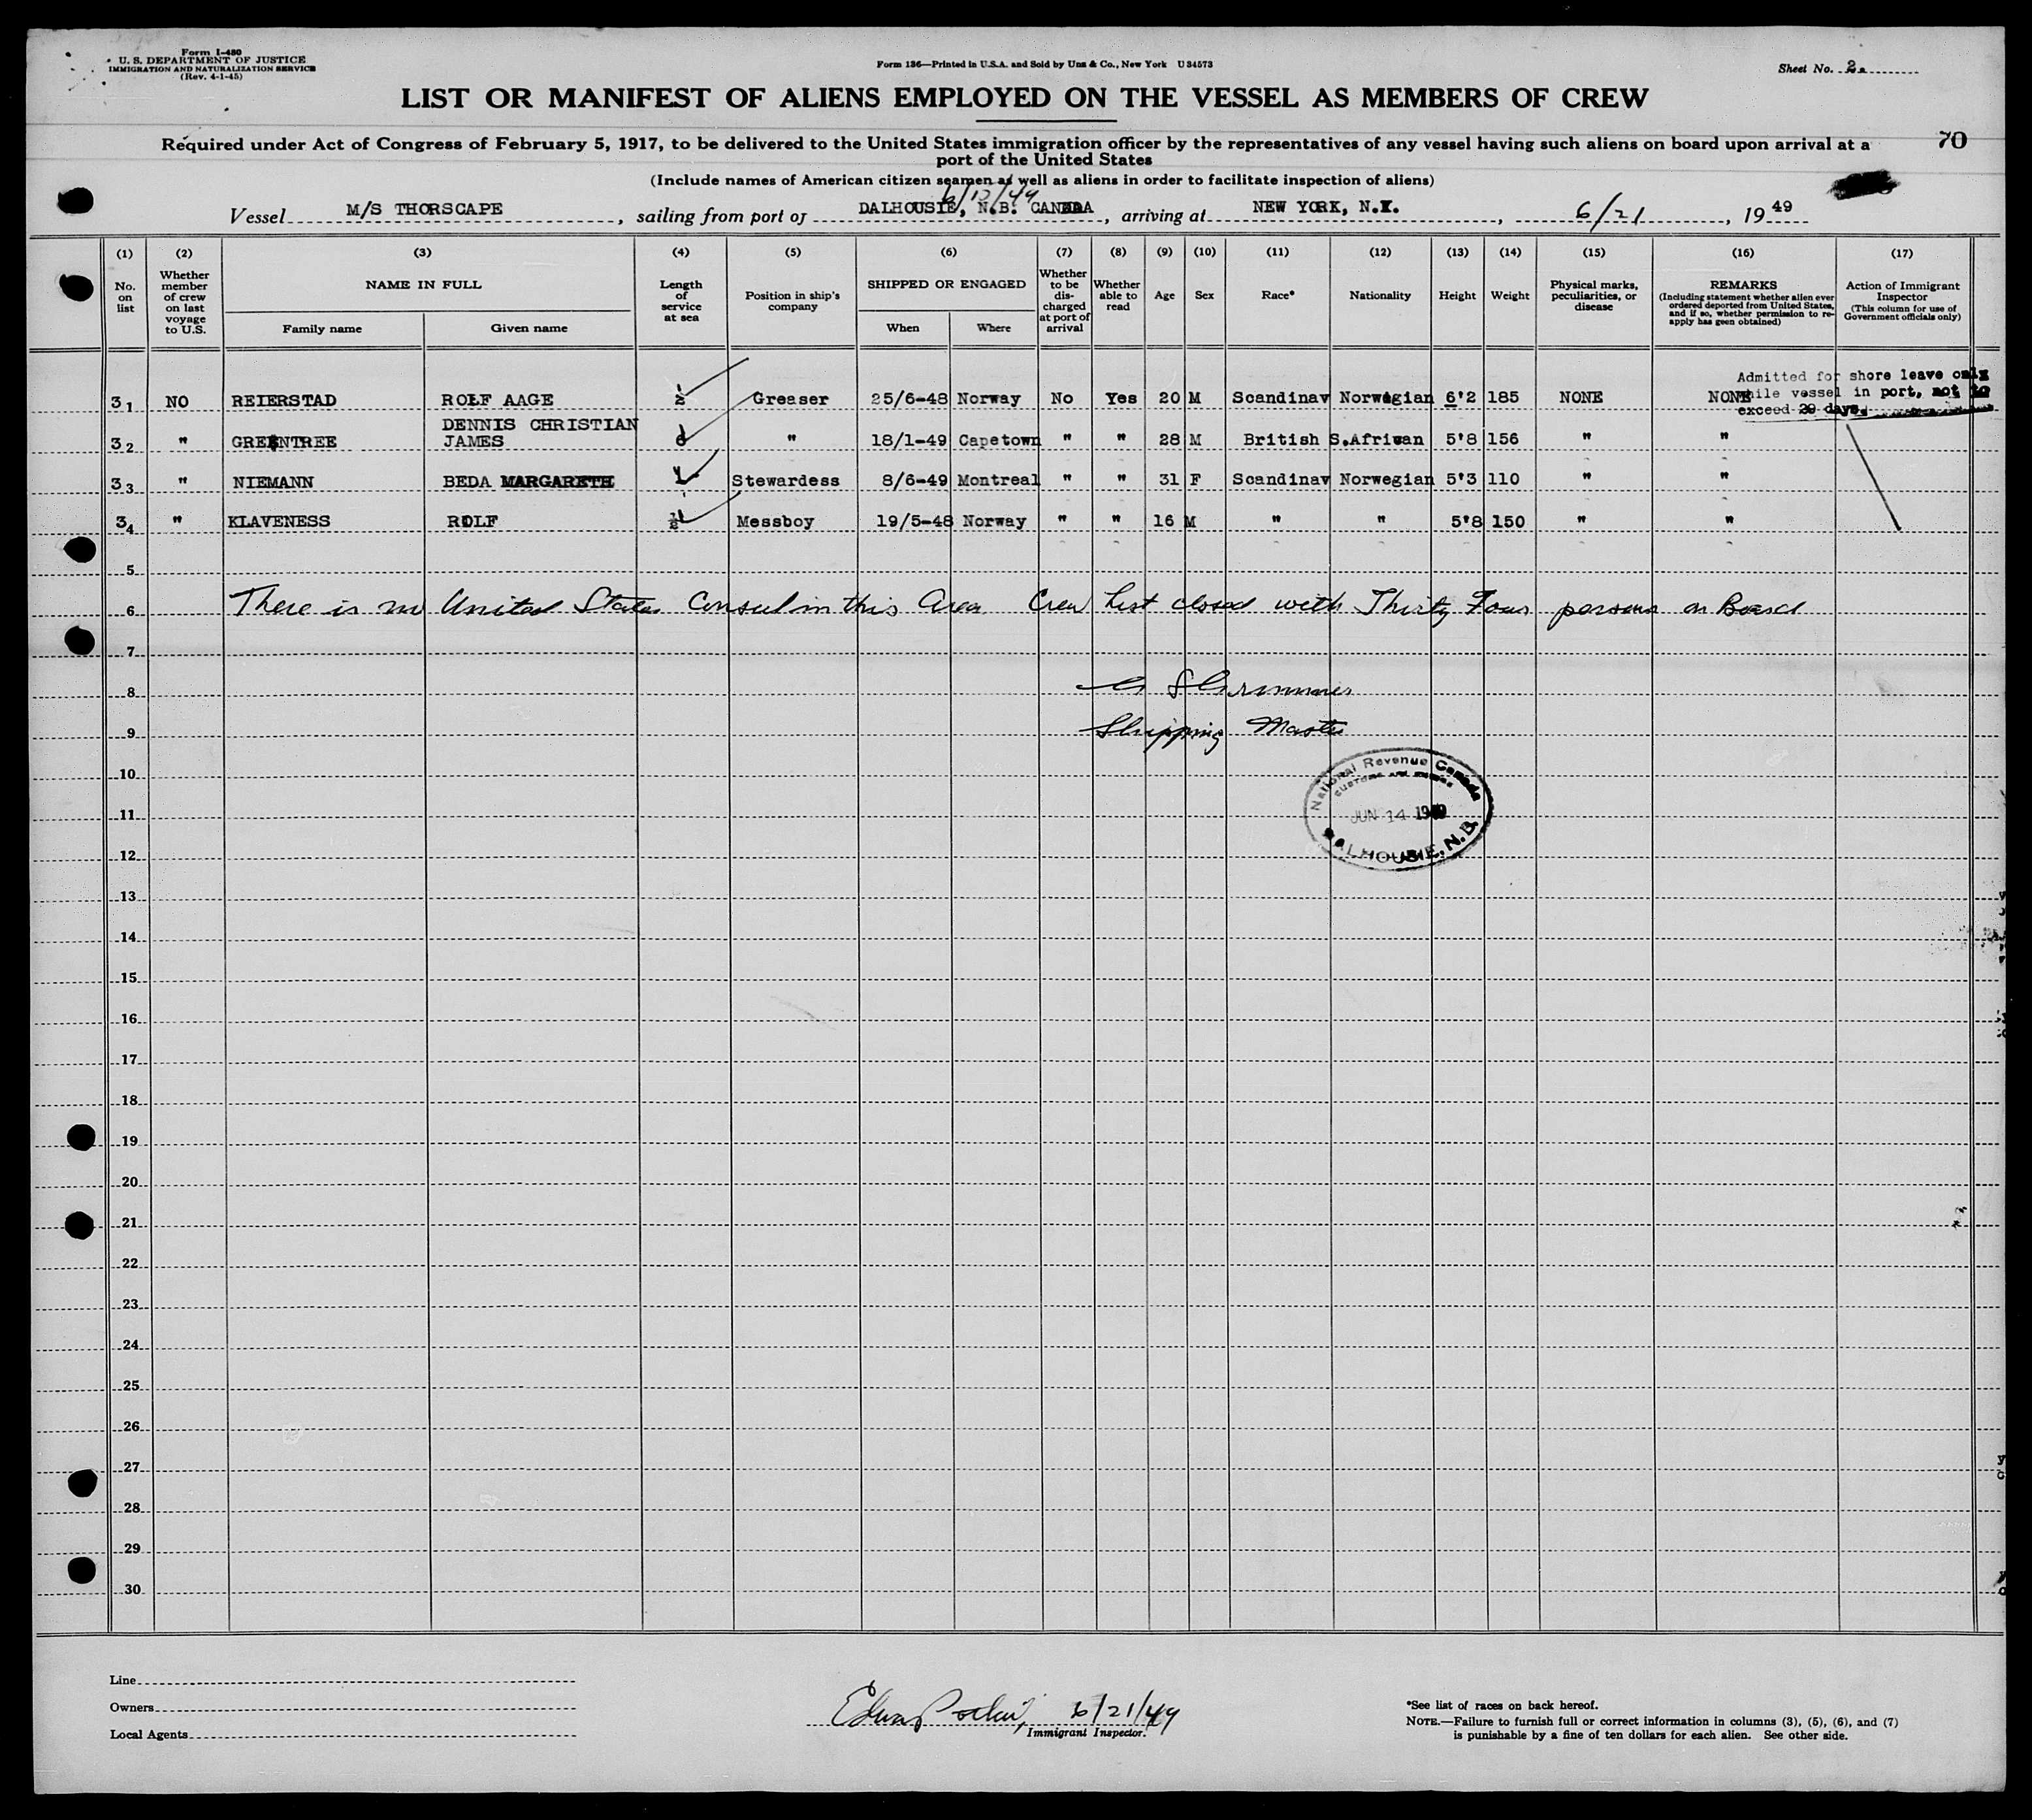 Form I-480
U. S. DEPARTMENT OF JUSTICE
IMMIGRATION AND NATURALIZATION SERVICE
(Rev. 4-1-45)
Form 136—Printed in U.S.A. and Sold by Unz & Co., New York U 34573
Sheet No. 2.
LIST OR MANIFEST OF ALIENS EMPLOYED ON THE VESSEL AS MEMBERS OF CREW
Required under Act of Congress of February 5, 1917, to be delivered to the United States immigration officer by the representatives of any vessel having such aliens on board upon arrival at a
port of the United States
70
(Include names of American citizen seamen as well as aliens in order to facilitate inspection of aliens)
Vessel M/S THORSCAPE, sailing from port of DALHOUSIE, N.B. CANADA, arriving at NEW YORK, N.Y., 6/21, 1949
(1) (2) (3) (4) (5) (6) (7) (8) (9) (10) (11) (12) (13) (14) (15) (16) (17)
No. on list
Whether member of crew on last voyage to U.S.
NAME IN FULL
Family name Given name
Length of service at sea
Position in ship's company
SHIPPED OR ENGAGED
When Where
Whether to be discharged at port of arrival
Whether able to read
Age
Sex
Race*
Nationality
Height
Weight
Physical marks, peculiarities, or disease
REMARKS
(Including statement whether alien ever ordered deported from United States, and if so, whether permission to re-apply has geen obtained)
Action of Immigrant Inspector
(This column for use of Government officials only)
Admitted for shore leave only
while vessel in port, not to
exceed 29 days.
31 NO REIERSTAD ROLF AAGE Greaser 25/6-48 Norway No Yes 20 M Scandinav Norwegian 6'2 185 NONE NONE
DENNIS CHRISTIAN
32 " GREENTREE JAMES " 18/1-49 Capetown " " 28 M British S.African 5'8 156 " "
33 " NIEMANN BEDA MARGARETH Stewardess 8/6-49 Montreal " " 31 F Scandinav Norwegian 5'3 110 " "
34 " KLAVENESS ROLF Messboy 19/5-48 Norway " " 16 M " " 5'8 150 " "
5
6 There is no United States Consul in this Area Crew list closed with Thirty Four persons on Board
7
8
9 Shipping Master
10
National Revenue Canada
CUSTOMS AND EXCISE
JUN 14 1949
DALHOUSIE, N.B.
11
12
13
14
15
16
17
18
19
20
21
22
23
24
25
26
27
28
29
30
Line
Owners
Local Agents
6/21/49
Immigrant Inspector.
*See list of races on back hereof.
NOTE.—Failure to furnish full or correct information in columns (3), (5), (6), and (7)
is punishable by a fine of ten dollars for each alien. See other side.